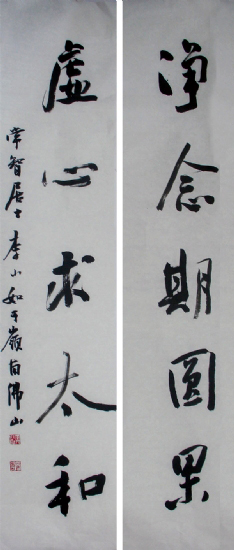 净念期圆果
虚心求太和
常智居士李小如于嶺南佛山